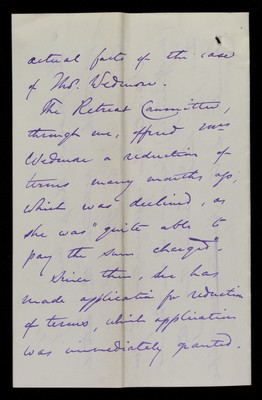 actual facts of the case
of Thos. Wedmore.
The Retreat Committee,
through me, offered Mrs
Wedmore a reduction of
terms many months ago,
which was declined, as
she was "quite able to
pay the sum charged".
Since then, she has
made application for reduction
of terms, which application
was immediately granted.